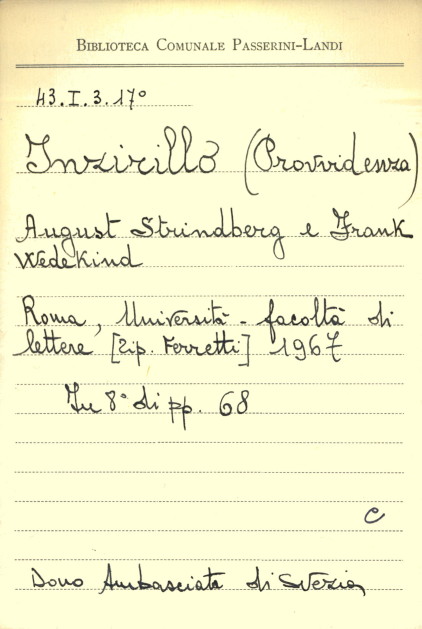 BIBLIOTECA COMUNALE PASSERINI-LANDI
43.I.3.17°
Inzirillo (Provvidenza)
August Strindberg e Frank
Wedekind
Roma, Università - facoltà di
lettere [Tip. Ferretti] 1967
In 8° di pp. 68
C
Dono Ambasciata di Svezia